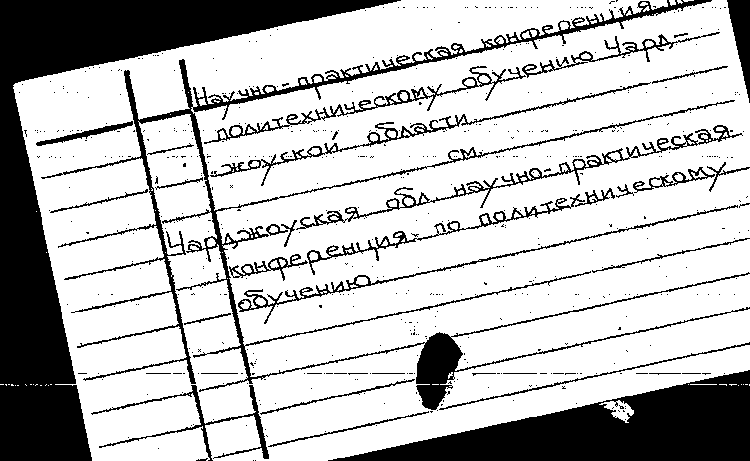 Научно-практическая конференция по
политехническому обучению Чард-
жоуской области
см.
Чарджоуская обл. научно-практическая
конференция по политехническому
обучению.